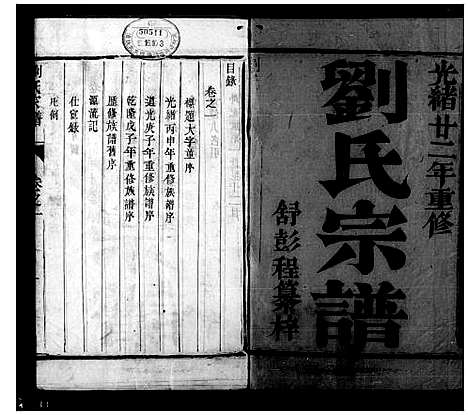 光緒廿二年重修
劉氏宗譜
舒彭程纂梓
目錄
卷之一
標題大字董序
光緒丙申年重修族譜序
道光庚子年重修族譜序
乾隆戊子年重修族譜序
歷修族譜舊序
源流記
仕宦錄
凡例
50511